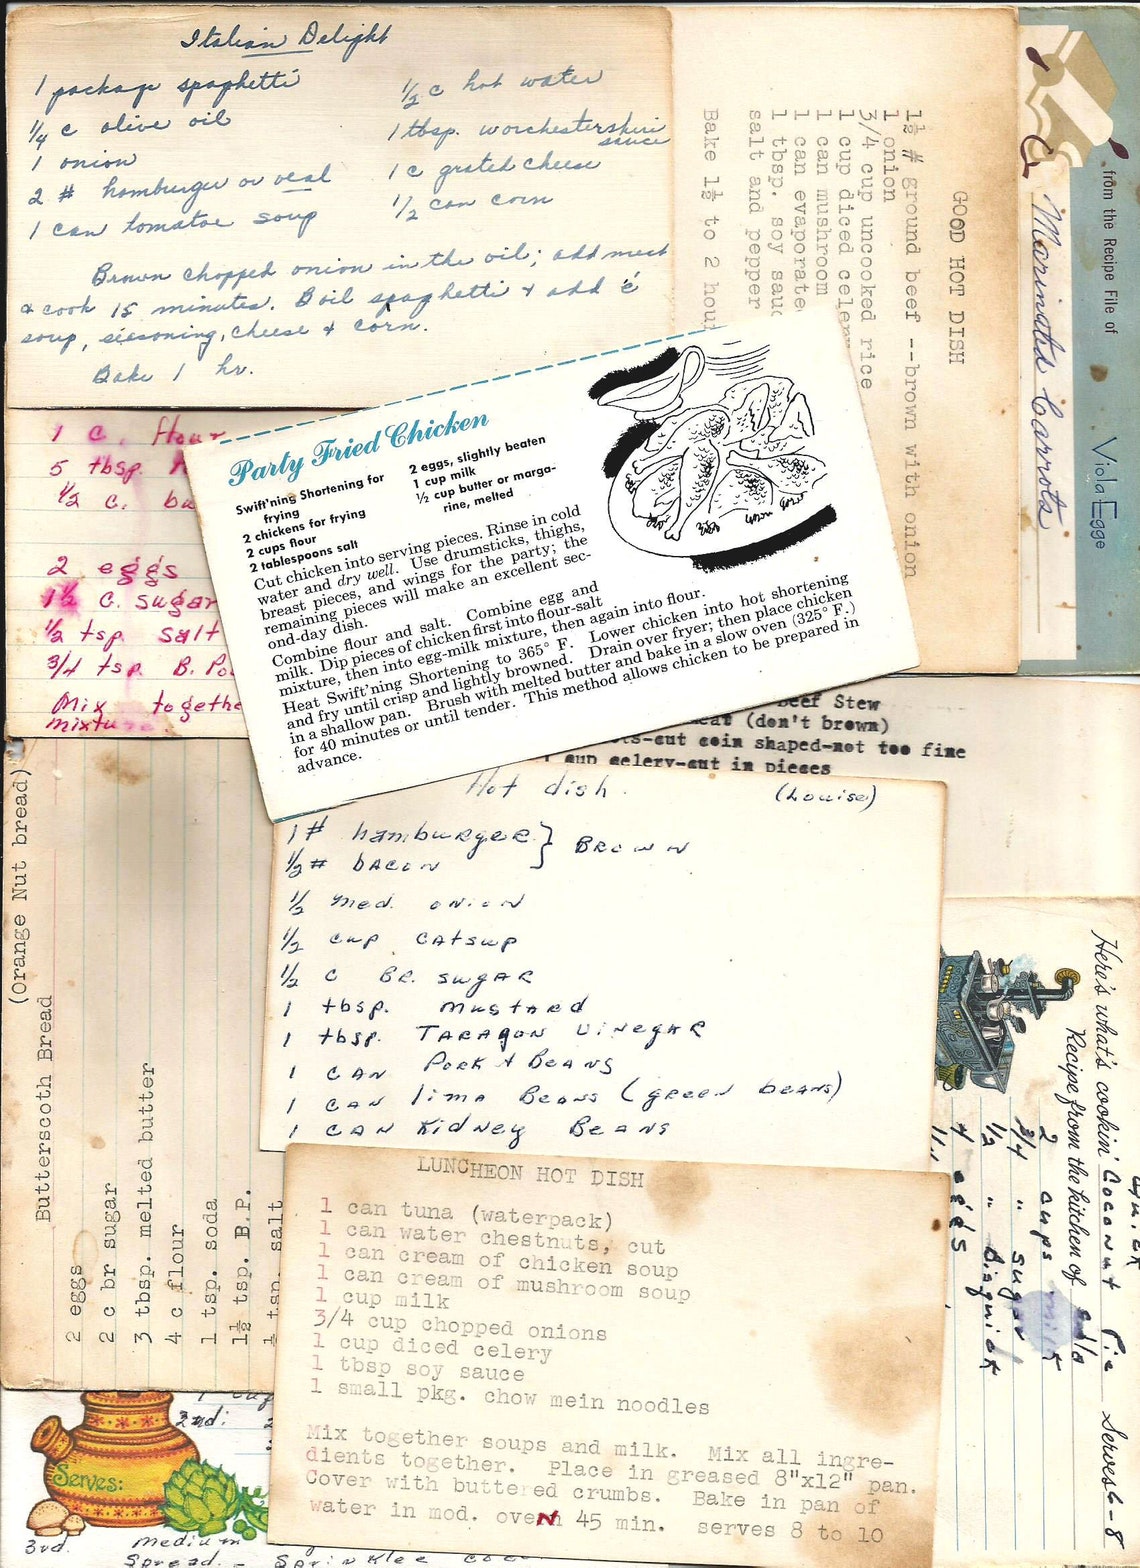 Italian Delight
1 package spaghetti
1/4 c olive oil
1 onion
2 # hamburger or veal
1 can tomatoe soup
1/2 c hot water
1 tbsp. worchestershire
sauce
1 c grated cheese
1/2 can corn
Brown chopped onion in the oil; add meat
& cook 15 minutes. Boil spaghetti & add c̄
soup, seasoning, cheese & corn.
Bake 1 hr.
GOOD HOT DISH
1½ # ground beef --brown with onion
1 onion
3/4 cup uncooked rice
1 cup diced celery
1 can mushroom
1 can evaporate
1 tbsp. soy sauc
salt and pepper
Bake 1½ to 2 hour
from the Recipe File of
Viola Egge
Marinated Carrots
1 c. flour
5 tbsp.
1/2 c. bu
2 eggs
1½ c. sugar
1/2 tsp. salt
3/4 tsp. B. Po
Mix togethe
mixtu
Party Fried Chicken
Swift'ning Shortening for
frying
2 chickens for frying
2 cups flour
2 tablespoons salt
2 eggs, slightly beaten
1 cup milk
½ cup butter or marga-
rine, melted
Cut chicken into serving pieces. Rinse in cold
water and dry well. Use drumsticks, thighs,
breast pieces, and wings for the party; the
remaining pieces will make an excellent sec-
ond-day dish.
Combine flour and salt. Combine egg and
milk. Dip pieces of chicken first into flour-salt
mixture, then into egg-milk mixture, then again into flour.
Heat Swift'ning Shortening to 365° F. Lower chicken into hot shortening
and fry until crisp and lightly browned. Drain over fryer; then place chicken
in a shallow pan. Brush with melted butter and bake in a slow oven (325° F.)
for 40 minutes or until tender. This method allows chicken to be prepared in
advance.
Beef Stew
(don't brown)
-cut coin shaped-not too fine
cup celery-cut in pieces
(Orange Nut bread)
Butterscoth Bread
2 eggs
2 c br sugar
3 tbsp. melted butter
4 c flour
1 tsp. soda
1½ tsp. B.P.
½ tsp. salt
Hot dish. (Louise)
1 # hamburger } Brown
1/2 # bacon
1/2 med. onion
1/2 cup catsup
1/2 c Br. sugar
1 tbsp. mustard
1 tbsp. Taragon Vinegar
1 can Pork & Beans
1 can lima Beans (green beans)
1 can Kidney Beans
Here's what's cookin' Coconut Pie Serves 6-8
Recipe from the kitchen of
2 cups milk
3/4 " sugar
1/2 " Bisquick
4 eggs
LUNCHEON HOT DISH
1 can tuna (waterpack)
1 can water chestnuts, cut
1 can cream of chicken soup
1 can cream of mushroom soup
1 cup milk
3/4 cup chopped onions
1 cup diced celery
1 tbsp soy sauce
1 small pkg. chow mein noodles
Mix together soups and milk. Mix all ingre-
dients together. Place in greased 8"x12" pan.
Cover with buttered crumbs. Bake in pan of
water in mod. oveN 45 min. serves 8 to 10
2nd:
Serves:
3rd. Medium
Spread - Sprinklee coc